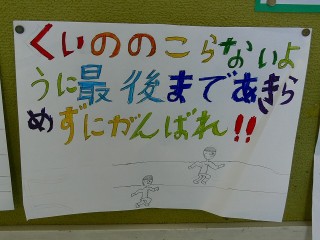 くいののこらないよ
うに最後まであきら
めずにがんばれ!!